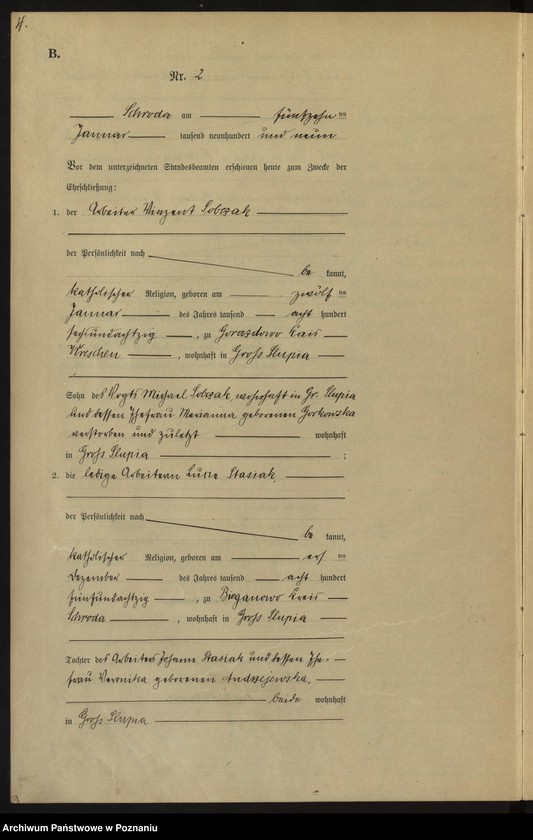 4.
B.
Nr. 2
Schroda am fünfzehn ten
Januar tausend neunhundert und neun
Vor dem unterzeichneten Standesbeamten erschienen heute zum Zwecke der
Eheschließung:
1. der Arbeiter Vinzent Sobczak
der Persönlichkeit nach
be kannt,
katholischer Religion, geboren am zwölf ten
Januar des Jahres tausend acht hundert
sechsundachtzig, zu Gorazdowo Kreis
Wreschen, wohnhaft in Groß Slupia
Sohn des Vogts Michael Sobczak, wohnhaft in Gr. Slupia
und dessen Ehefrau Marianna geborenen Gorkowska
verstorben und zuletzt wohnhaft
in Groß Slupia ;
2. die ledige Arbeiterin Stasiak,
der Persönlichkeit nach
be kannt,
katholischer Religion, geboren am elf ten
Dezember des Jahres tausend acht hundert
fünfundachtzig, zu Bieganowo Kreis
Schroda, wohnhaft in Groß Slupia
Tochter des Arbeiters Johann Stasiak und dessen Ehe-
frau Veronika geborenen Andrzejewska,
beide wohnhaft
in Groß Slupia
Archiwum Państwowe w Poznaniu